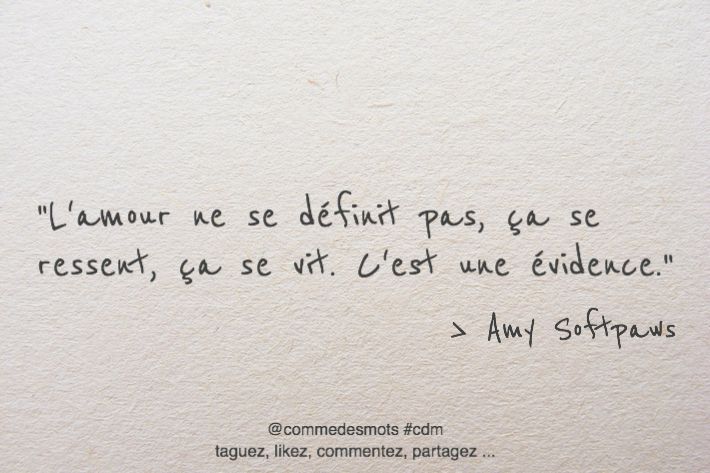 "L'amour ne se définit pas, ça se
ressent, ça se vit. C'est une évidence."
> Amy Softpaws
@commedesmots #cdm
taguez, likez, commentez, partagez ...